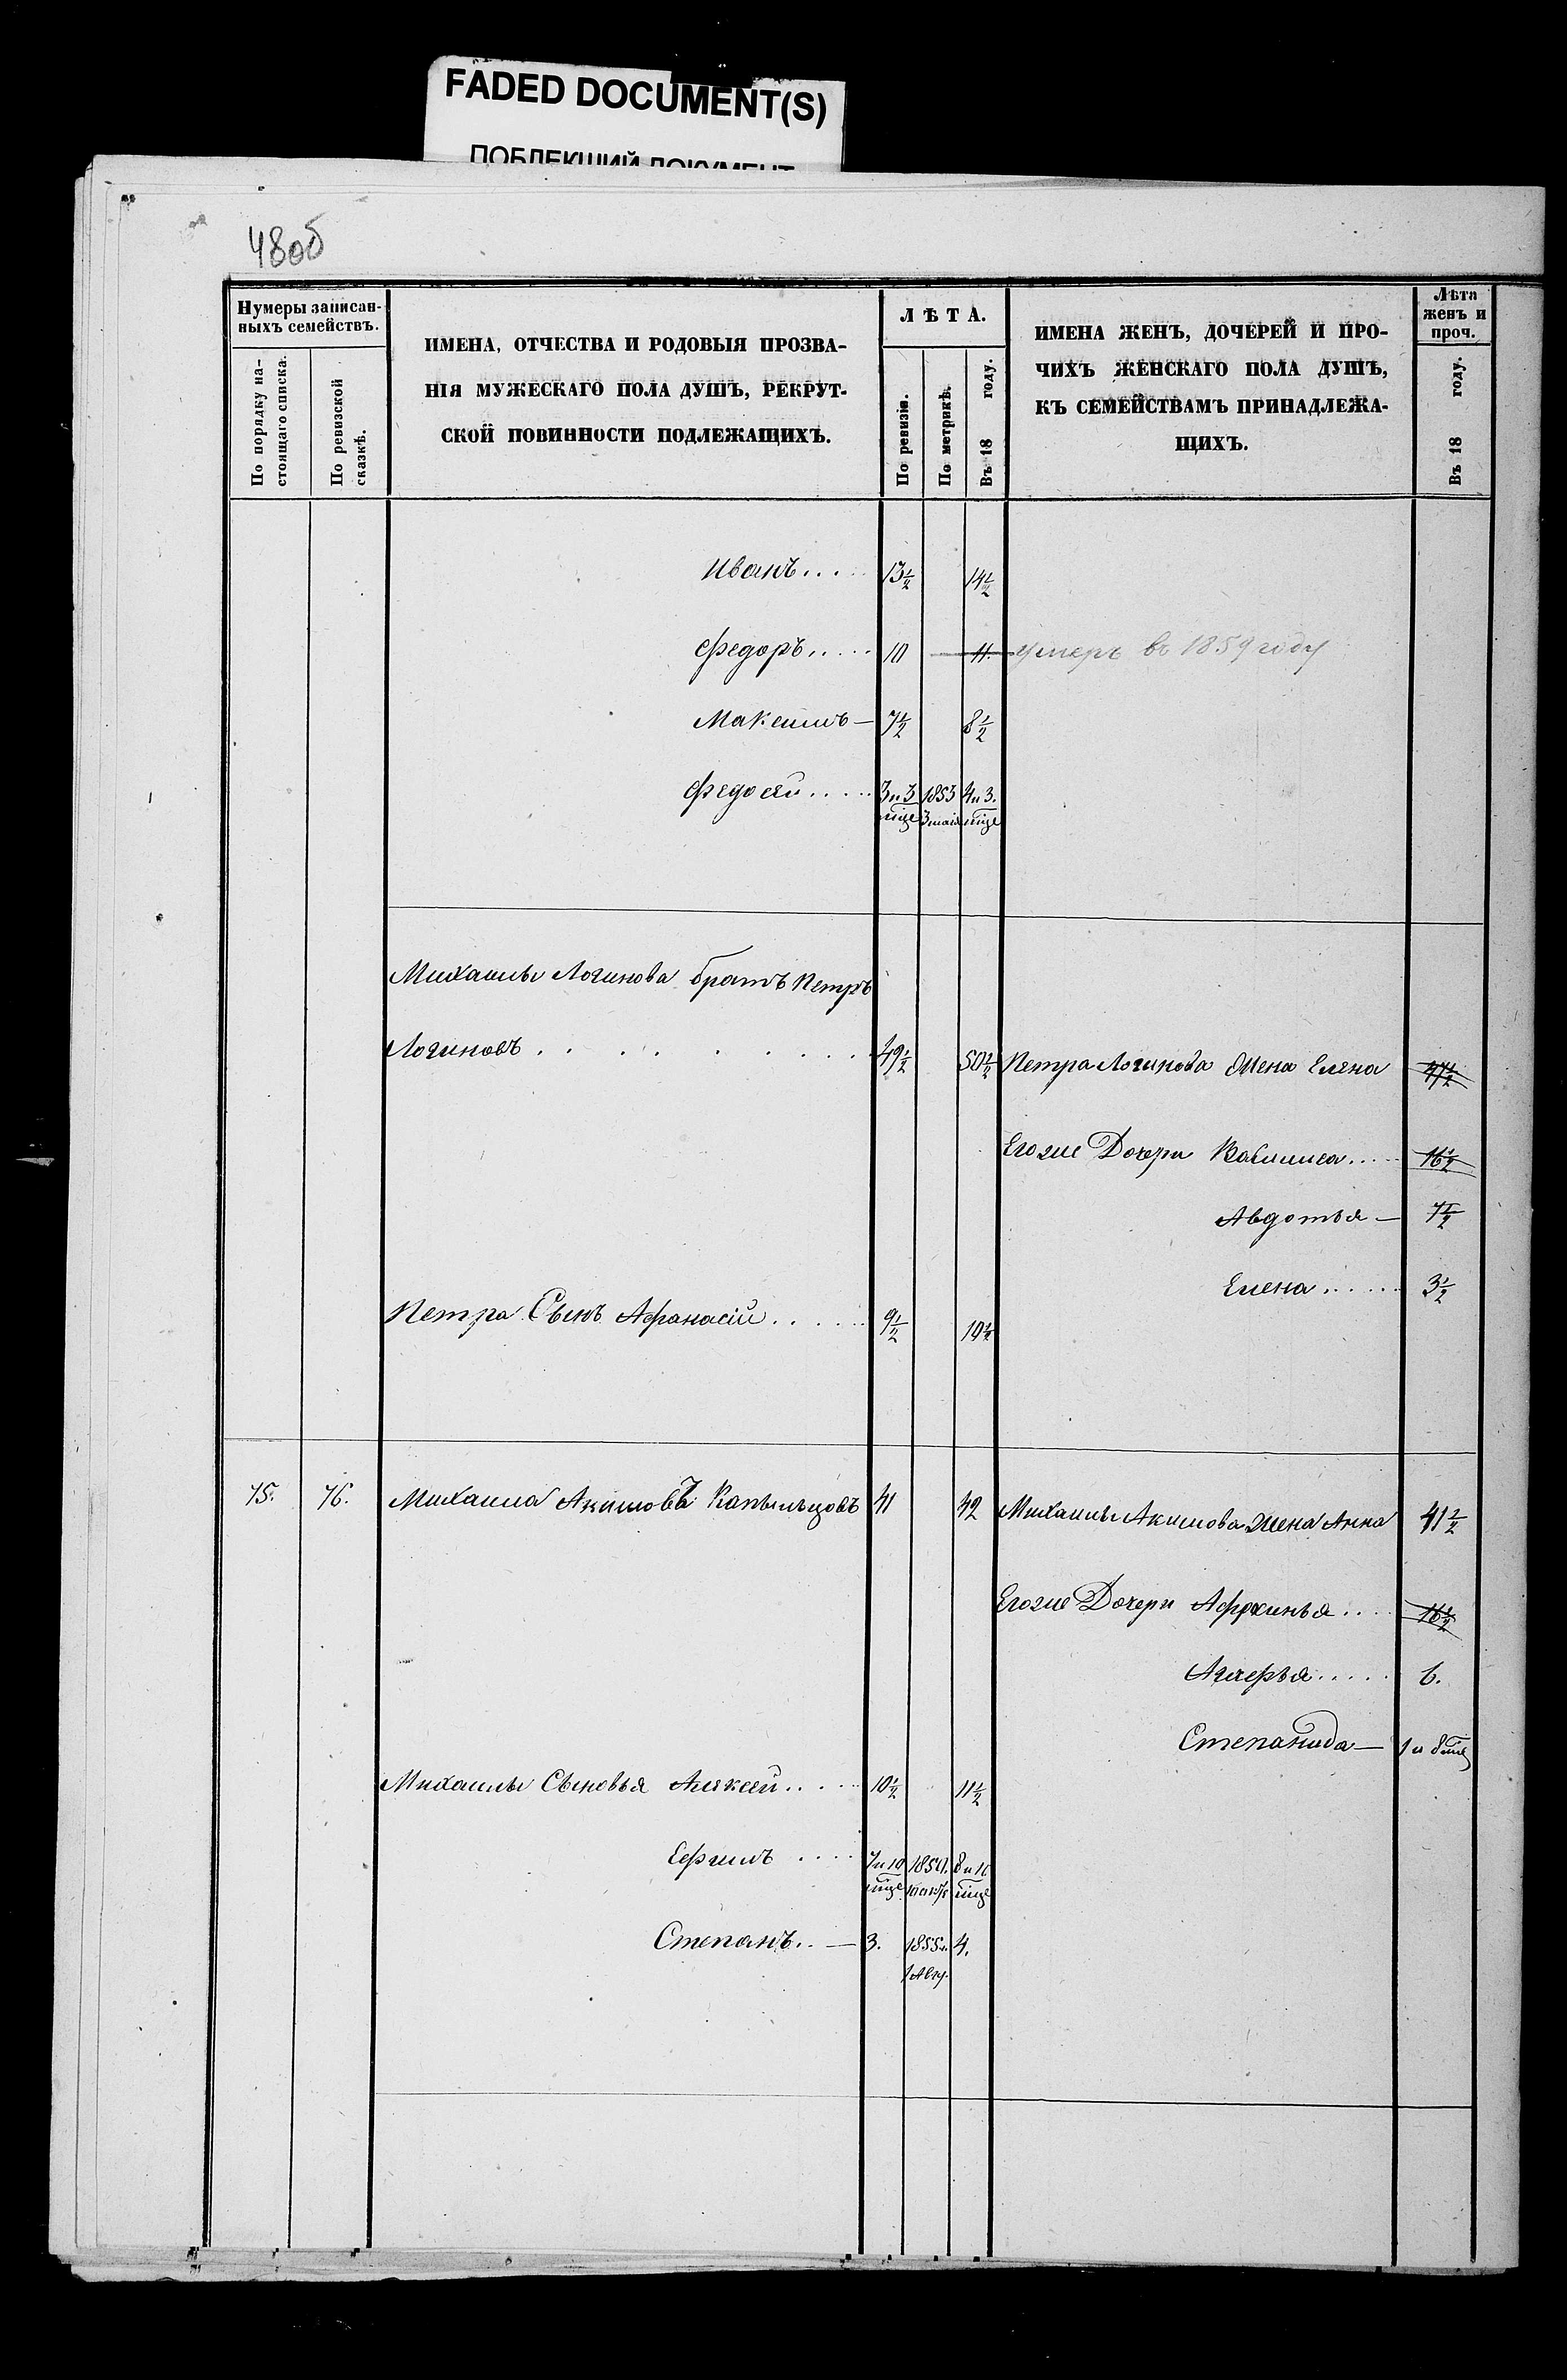 FADED DOCUMENT(S)
ПОБЛЕКШИЙ ДОКУМЕНТ
48об
Нумеры записан-
ныхъ семействъ.
По порядку на-
стоящаго списка.
По ревизской
сказкѣ.
ИМЕНА, ОТЧЕСТВА И РОДОВЫЯ ПРОЗВА-
НІЯ МУЖЕСКАГО ПОЛА ДУШЪ, РЕКРУТ-
СКОЙ ПОВИННОСТИ ПОДЛЕЖАЩИХЪ.
ЛѢТА.
По ревизіи.
По метрикѣ.
Въ 18 году.
ИМЕНА ЖЕНЪ, ДОЧЕРЕЙ И ПРО-
ЧИХЪ ЖЕНСКАГО ПОЛА ДУШЪ,
КЪ СЕМЕЙСТВАМЪ ПРИНАДЛЕЖА-
ЩИХЪ.
Лѣта
женъ и
проч.
Въ 18 году.
Иванъ.... 13½ 14½
Федоръ..... 10 11. умеръ въ 1859 году
Максимъ— 7½ 8½
Федосѣй..... 3 и 3 1853 4 и 3.
мѣце 3 маія мѣце
Михаилы Логинова братъ Петръ
Логиновъ......... 49½ 50½ Петра Логинова Жена Елена 47½
Егоже Дочери Васлиса.... 16½
Авдотья— 7½
Елена..... 3½
Петра Сынъ Афанасій...... 9½ 10½
75. 76. Михаила Акимовъ Капыльцовъ 41 42 Михаилы Акимова жена Анна 41½
Егоже Дочери Афрсинья.... 16½
Агаѳья..... 6.
Степанида— 1 и 8 мѣц
Михаилы Сыновья Алексѣй.... 10½ 11½
Ефимъ .... 7 и 10 1850. 8 и 10
мѣце мѣце
Степанъ..— 3. 1855г. 4.
1 Авгу.